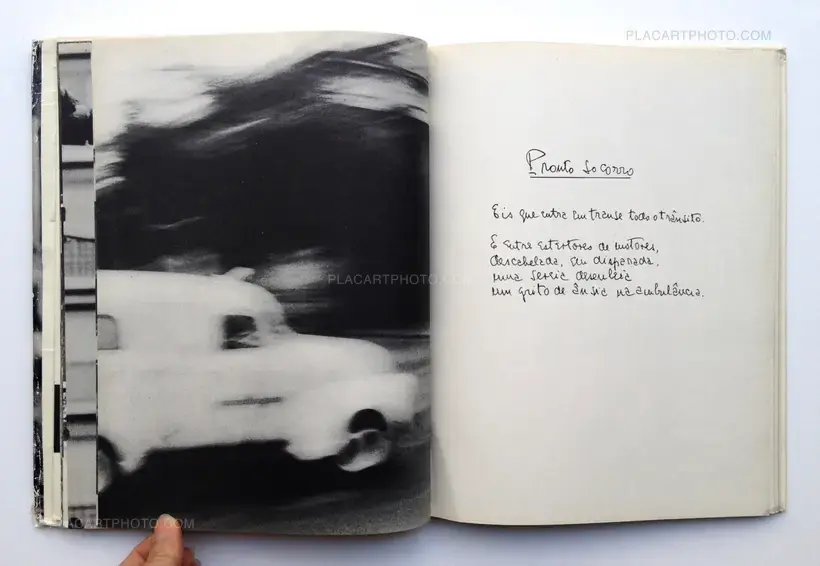 PLACARTPHOTO.COM
Pronto Socorro
Eis que entra em transe todo o trânsito.
E entre estertores de motores,
descabelada, em disparada,
uma sereia desenleia
um grito de ânsia na ambulância.
PLACARTPHOTO.COM
PLACARTPHOTO.COM